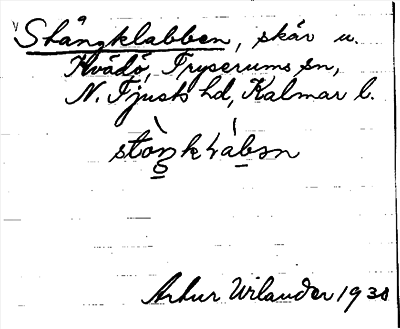 Stångklabben, skär u.
Kvädö, Tryserums sn,
N. Tjusts hd, Kalmar l.
Arthur Wilander 1930